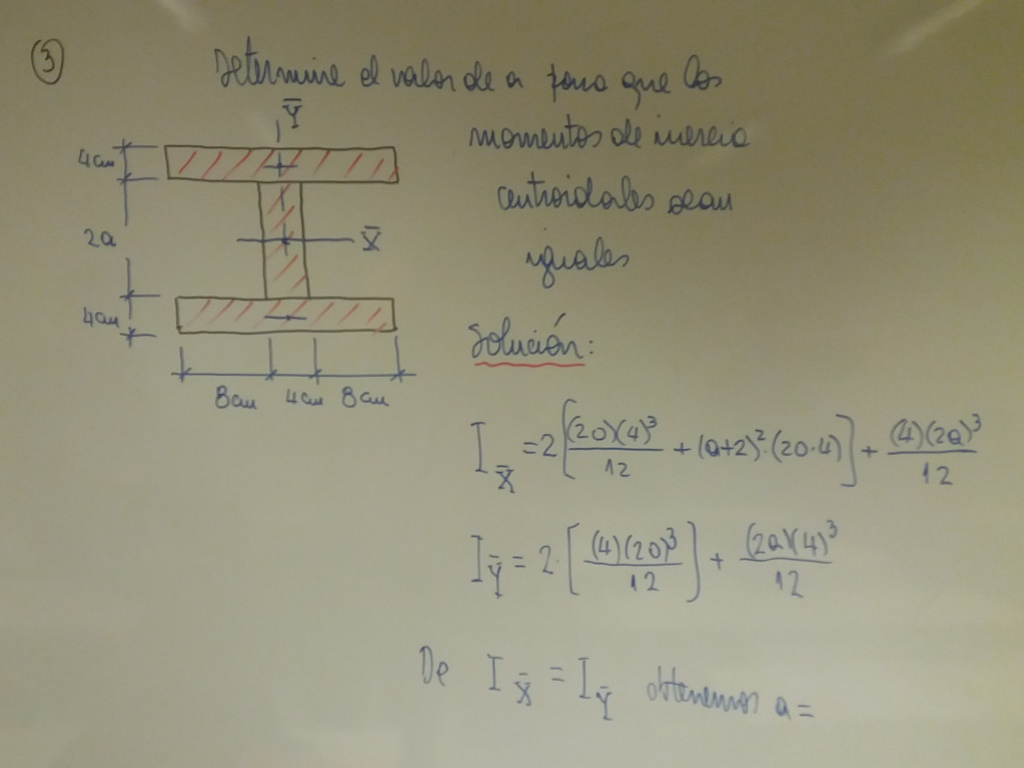 3
Determine el valor de a para que los
momentos de inercia
centroidales sean
iguales
Ȳ
4cm
2a
X̄
4cm
8cm 4cm 8cm
Solución:
I_X̄ = 2[(20)(4)³/12 + (a+2)²·(20·4)] + (4)(2a)³/12
I_Ȳ = 2·[(4)(20)³/12] + (2a)(4)³/12
De I_X̄ = I_Ȳ obtenemos a =